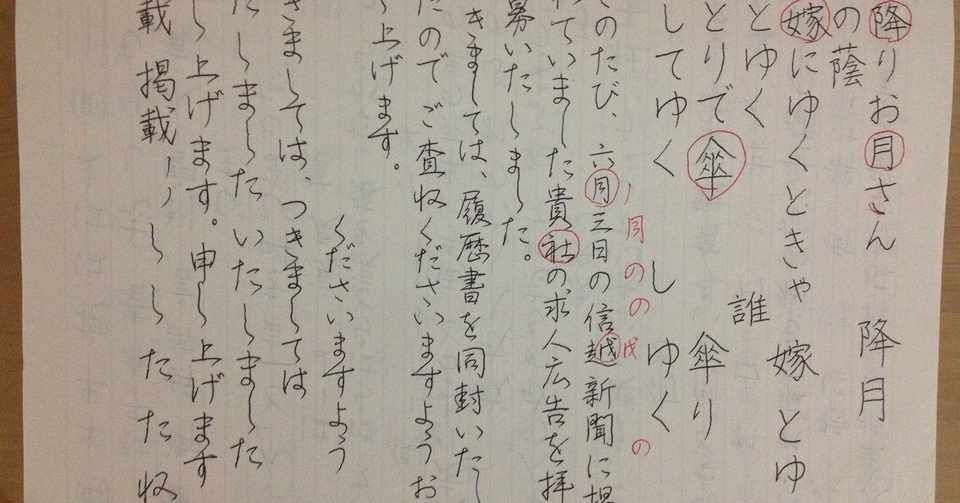 降りお月さん　降月
の蔭
嫁にゆくときゃ　嫁とゆ
とゆく　誰
とりで　傘　傘り
してゆく　しゆく
月のの戊　の
のたび、六月三日の信越新聞に掲
れていました貴社の求人広告を拝
募いたしました。
きましては、履歴書を同封いたし
だのでご査収くださいますようお
し上げます。
くださいますよう
きましては、つきましては
たしましたいたしました
し上げます。申し上げます
載　掲載　ししたた収